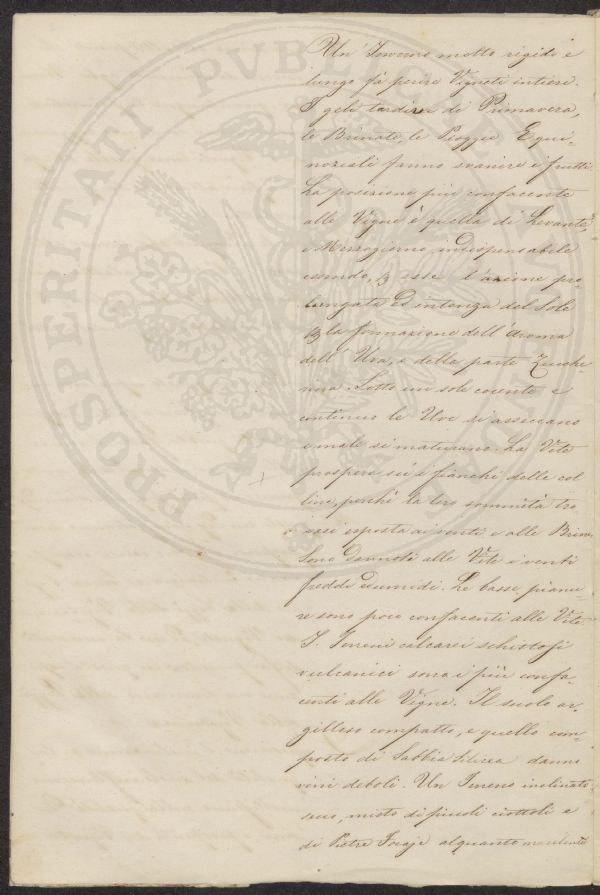 Un Inverno molto rigido e
lungo fà perire Vigneti intieri.
I geli tardivi di Primavera,
le Brinate, le Piogge Equi-
noziali fanno svanire i frutti
La posizione più confacente
alle Vigne è quella di Levante,
e Mezzogiorno indispensabile
essendo, p esse l'azione pro-
lungata ed intensa del Sole
p la formazione dell'Aroma
dell'Uva, e della parte Zucche-
rina. Sotto un sole cocente e
continuo le Uve si asseccano
e male si maturano. La Vite
prospera sù i fianchi delle col
line, perchè la loro sommità tro
vasi esposta ai venti e alle Brine.
Sono dannosi alle Vite i venti
freddi ed umidi. Le basse pianu-
re sono poco confacenti alle Vite
I Terreni calcarei schistosi
vulcanici sono i più confa-
centi alle Vigne. Il suolo ar-
gilloso compatto, e quello com-
posto di Sabbia Silicea danno
vini deboli. Un Terreno inclinato
seco, misto di piccoli ciottoli e
di Pietre alquanto
PROSPERITATI PVBLI